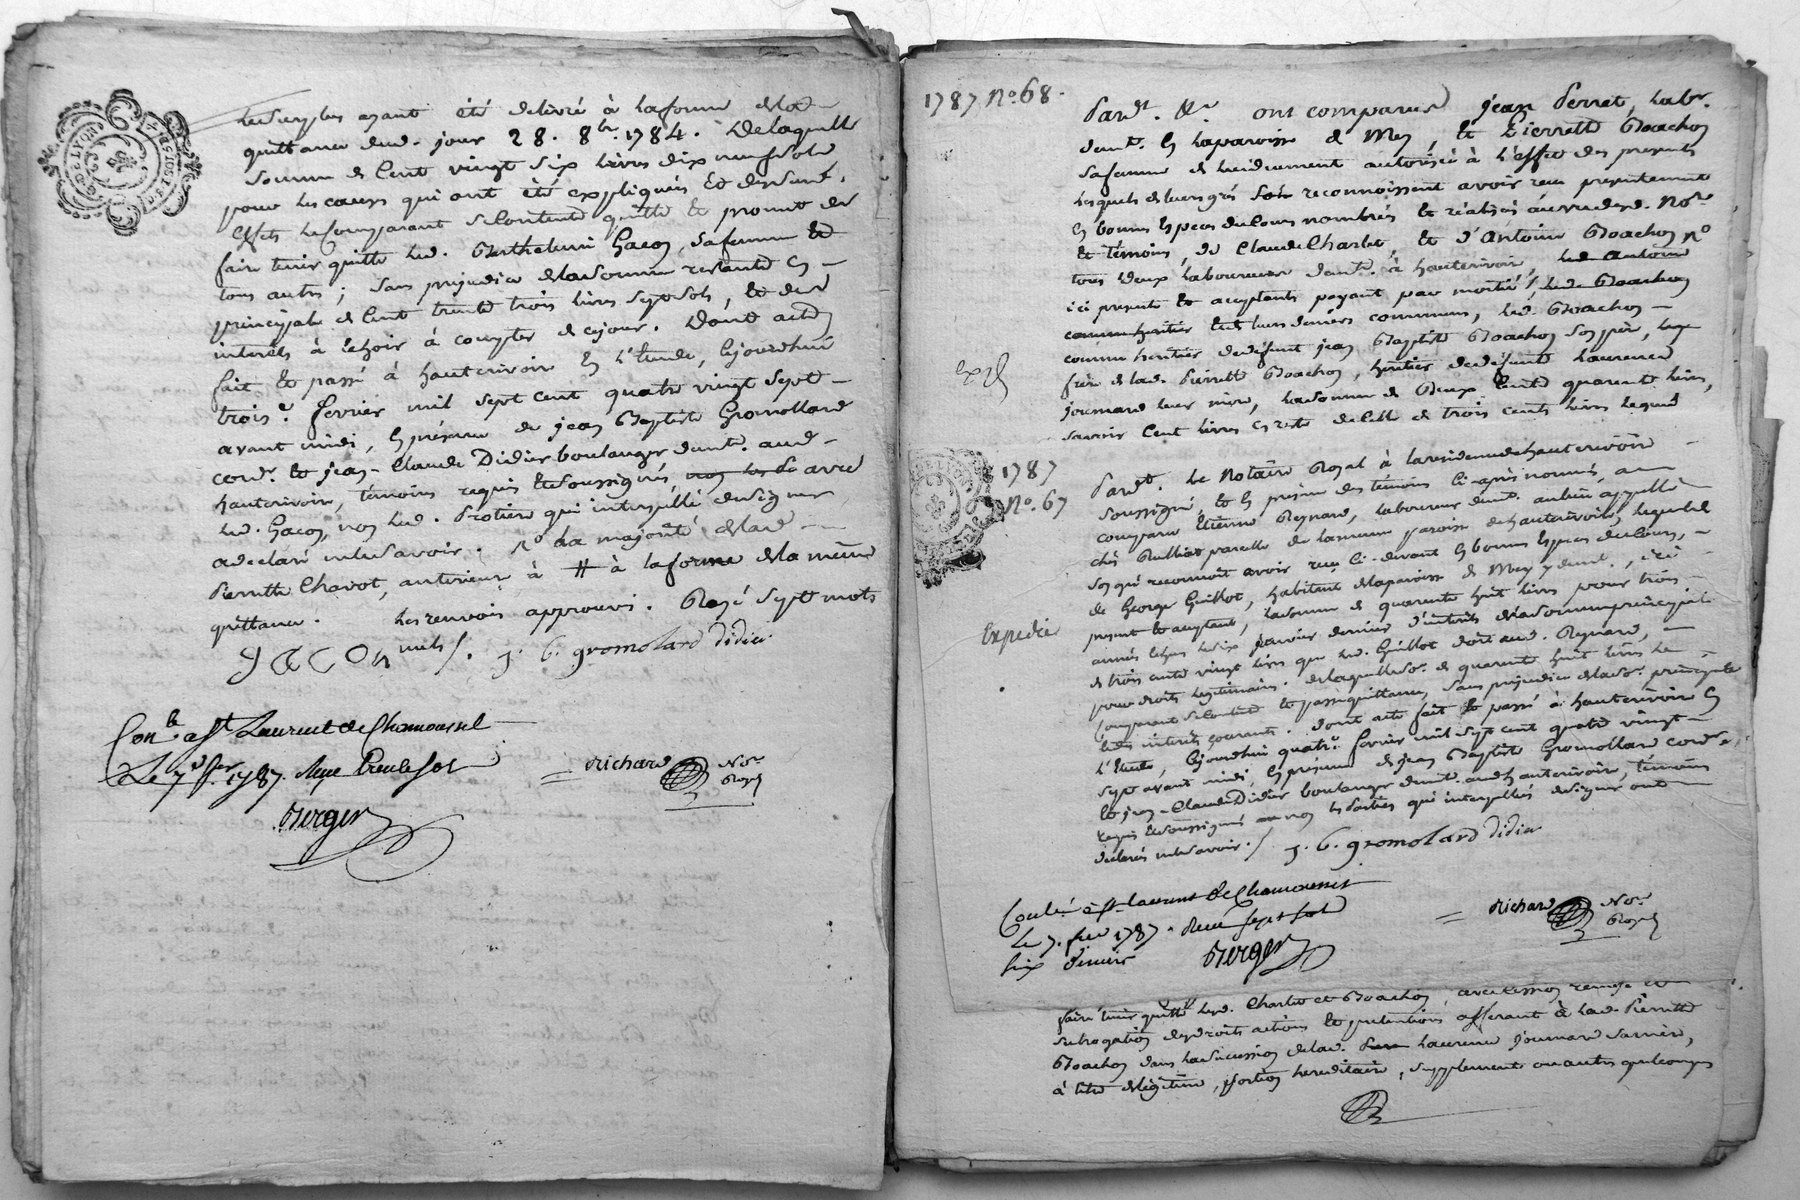 G. DE LYON
ayant été delivré à la forme de la
quittance dud. jour 28. 8bre. 1784. De laquelle
somme de Cent vingt six livres dix neuf sols
pour les causes qui ont été expliquées et dessus.
Effets le Comparant se Contente quitte et promet de
faire tenir quitte led. Barthelemi Gacon, sa femme et
tous autres; sans prejudice de la somme restante en
principale de Cent trente trois livres sept sols, et des
interêts à Echoir à compter de ce jour. Dont acte
fait et passé à hauterivoir En l'Etude, Cejourdhui
trois.e fevrier mil sept cent quatre vingt sept
avant midi, En présence de jean Baptiste Gromollard
cord.r et jean-Claude Didier boulanger dem.t aud.
hauterivoire, témoins requis et soussignés, avec
led. Gacon, non led. Protiere qui interpellé de signer
a declaré ne le savoir. la majorité de lad.
Pierrette Chavot, anterieur à # à la forme de la même
quittance. Les renvois approuvés. Rayé sept mots
GACON nuls/. J. B. gromolard didier
Con.lé a St Laurent de Chamousset
Le 7 f.er 1787. Reçu
Berger
Richard No.re Royal
1787 No. 68.
Pard.t &.a ont comparus jean Perret, lab.r
dem.t En la paroisse de Mey, et Pierrette Boachon
sa femme de lui dument autorisée à l'effet des presentes
lesquels de leurs grés reconnoissent avoir reçu presentement
En bonnes Especes du Cours nombrées et réalisées au vu desd. No.re
et témoins, de Claude Charlet, et d'Antoine Boachon
tous deux laboureurs dem.t à hauterivoir led. Antoine
ici presents et acceptants payant par moitié / led. Boachon
comme heritier de leurs deniers communs, led. Boachon
comme heritier de defunt jean Baptiste Boachon son père,
Exp.é
frère de lad. Pierrette Boachon, heritier de defunte Laurence
joumard leur mere, la somme de Deux Cents quarante livres,
savoir Cent livres En reste de celle de trois cents livres
1787
No. 67
Pard.t le Notaire Royal à la residence de hauterivoir
soussigné, et En presence des témoins Ci-après nommés, a
comparu Etienne Reynard, laboureur dem.t au lieu appellé
chés Rulliat parcelle de la meme paroisse de hauterivoir, lequel de
son gré reconnoit avoir reçu Ci-devant En bonnes Especes du Cours,
de George Guillot, habitant de la paroisse de Mey y dem.t, ici
present et acceptant, la somme de quarante huit livres pour trois
Expedié
années Echues le dix janvier dernier d'interêts de la somme principale
de trois cents vingt livres que led. Guillot doit aud. Reynard,
pour droits legitimaires. De laquelle so.e de quarante huit livres le
Comparant se Contente et passe quittance, sans prejudice de la so.e principale
et des interêts courants. Dont acte fait et passé à hauterivoir En
l'Etude, Cejourdhui quatr.e fevrier mil sept cent quatre vingt
sept avant midi, En présence de jean Baptiste Gromollard cord.r
et jean-Claude Didier boulanger dem.t aud. hauterivoir, témoins
requis et soussignés non les parties qui interpellées de signer ont
declarés ne le savoir./ J. B. gromolard didier
Conlé à St. Laurent de Chamousset
Le 7. fév 1787. Reçu sept sols
six deniers Berger
Richard No.re Royal
faire tenir quitte lesd. Charlet et Boachon, avec Cession remise et
subrogation des droits actions et pretentions afferant à lad. Pierrette
Boachon dans la succession de lad. Laurence Joumard sa mère,
à titre de légitime, portion hereditaire, supplement ou autres quelconques